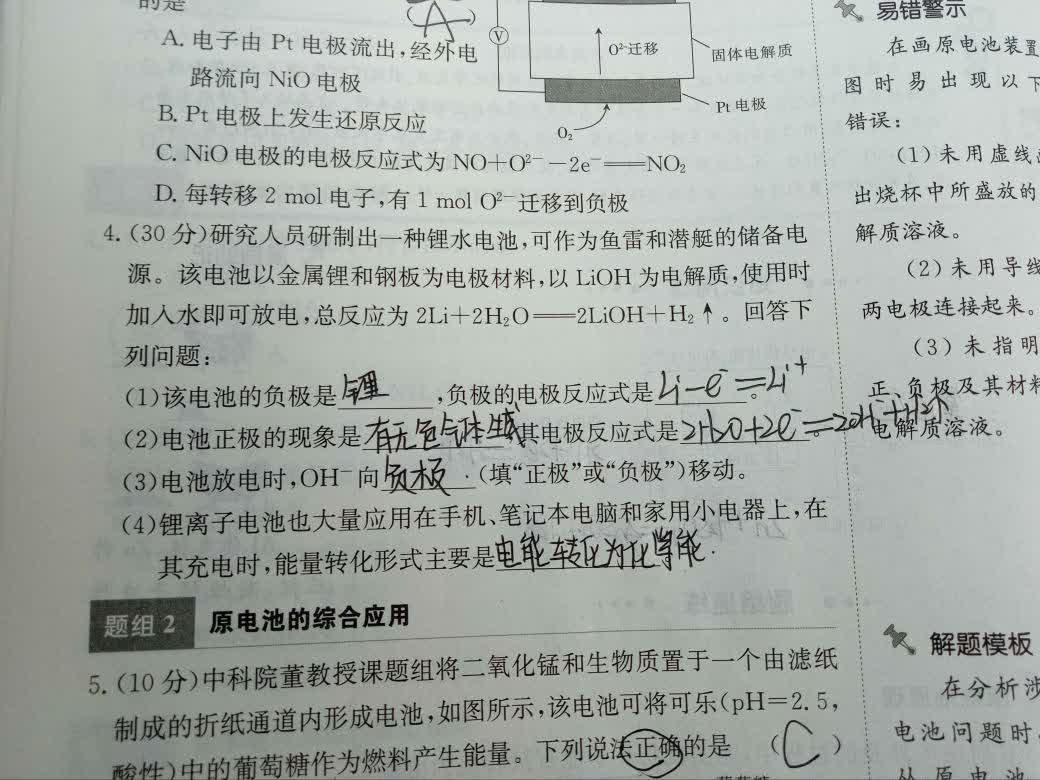 的是
A. 电子由 Pt 电极流出,经外电
路流向 NiO 电极
B. Pt 电极上发生还原反应
C. NiO 电极的电极反应式为 NO+O²⁻−2e⁻══NO₂
D. 每转移 2 mol 电子,有 1 mol O²⁻ 迁移到负极
V
O²⁻迁移
固体电解质
Pt 电极
O₂
4. (30 分)研究人员研制出一种锂水电池,可作为鱼雷和潜艇的储备电
源。该电池以金属锂和钢板为电极材料,以 LiOH 为电解质,使用时
加入水即可放电,总反应为 2Li+2H₂O══2LiOH+H₂↑。回答下
列问题:
(1)该电池的负极是锂,负极的电极反应式是Li−e⁻=Li⁺。
(2)电池正极的现象是有无色气体生成,其电极反应式是2H₂O+2e⁻=2OH⁻+H₂↑。
(3)电池放电时,OH⁻ 向负极(填“正极”或“负极”)移动。
(4)锂离子电池也大量应用在手机、笔记本电脑和家用小电器上,在
其充电时,能量转化形式主要是电能转化为化学能.
题组 2 原电池的综合应用
5. (10 分)中科院董教授课题组将二氧化锰和生物质置于一个由滤纸
制成的折纸通道内形成电池,如图所示,该电池可将可乐(pH=2.5,
酸性)中的葡萄糖作为燃料产生能量。下列说法正确的是 ( C )
易错警示
在画原电池装置
图时易出现以下
错误:
(1)未用虚线
出烧杯中所盛放的
解质溶液。
(2)未用导线
两电极连接起来。
(3)未指明
正、负极及其材料
电解质溶液。
解题模板
在分析涉
电池问题时,
从原电池